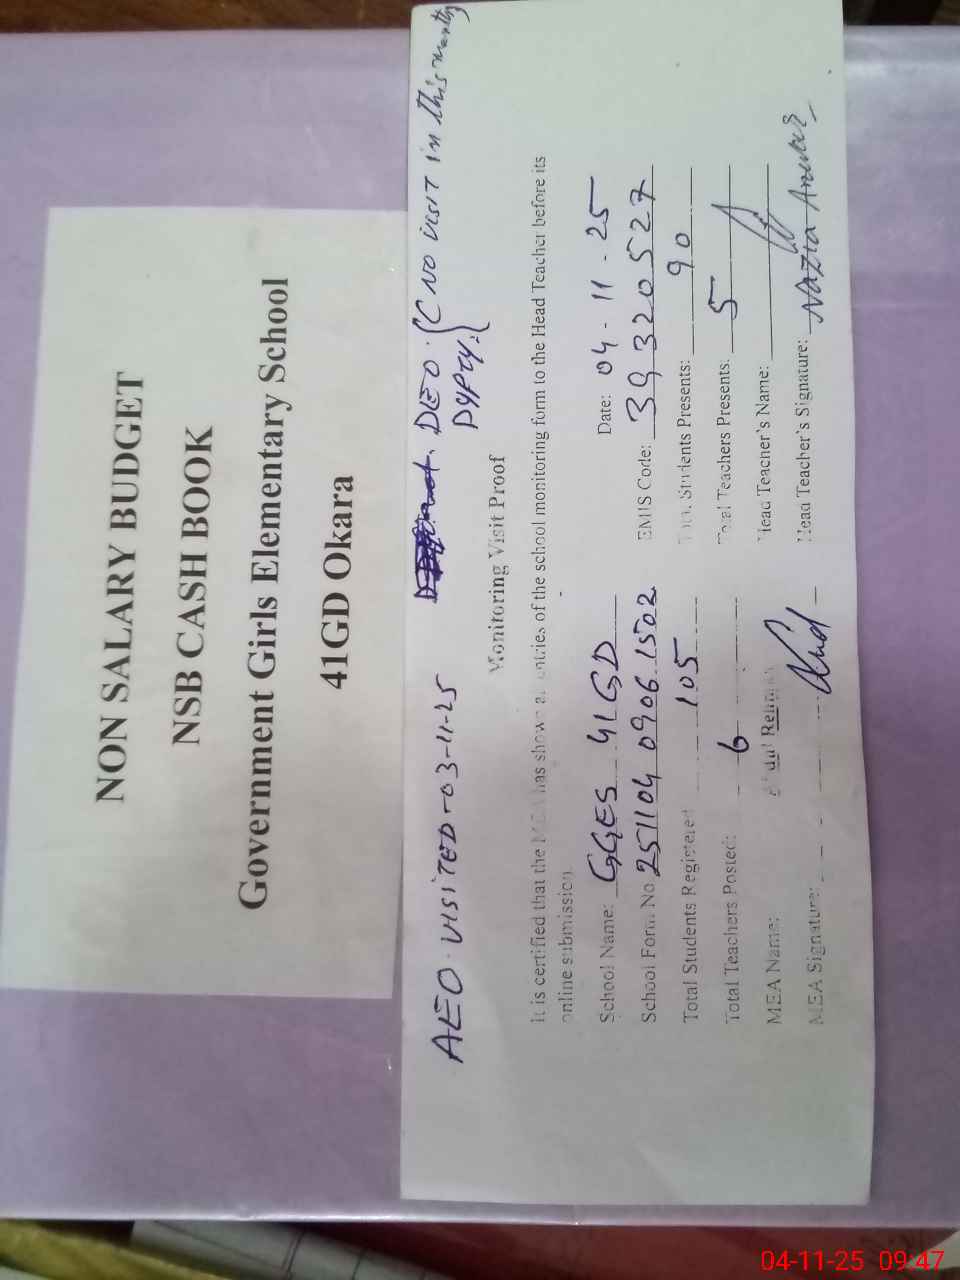 NON SALARY BUDGET
NSB CASH BOOK
Government Girls Elementary School
41GD Okara
AEO. VISITED-03-11-25 DEO. { (NO VISIT in this month)
Dypty. {
Monitoring Visit Proof
It is certified that the MEA has shown all entries of the school monitoring form to the Head Teacher before its
online submission.
School Name: GGES 41GD Date: 04-11-25
School Form No 251104 0906 1502 EMIS Code: 39320527
Total Students Registered 105 Total Students Presents: 90
Total Teachers Posted: 6 Total Teachers Presents: 5
MEA Name: Abdul Rehman Head Teacher's Name:
MEA Signature: Head Teacher's Signature: Nazia Anwar
04-11-25 09:47